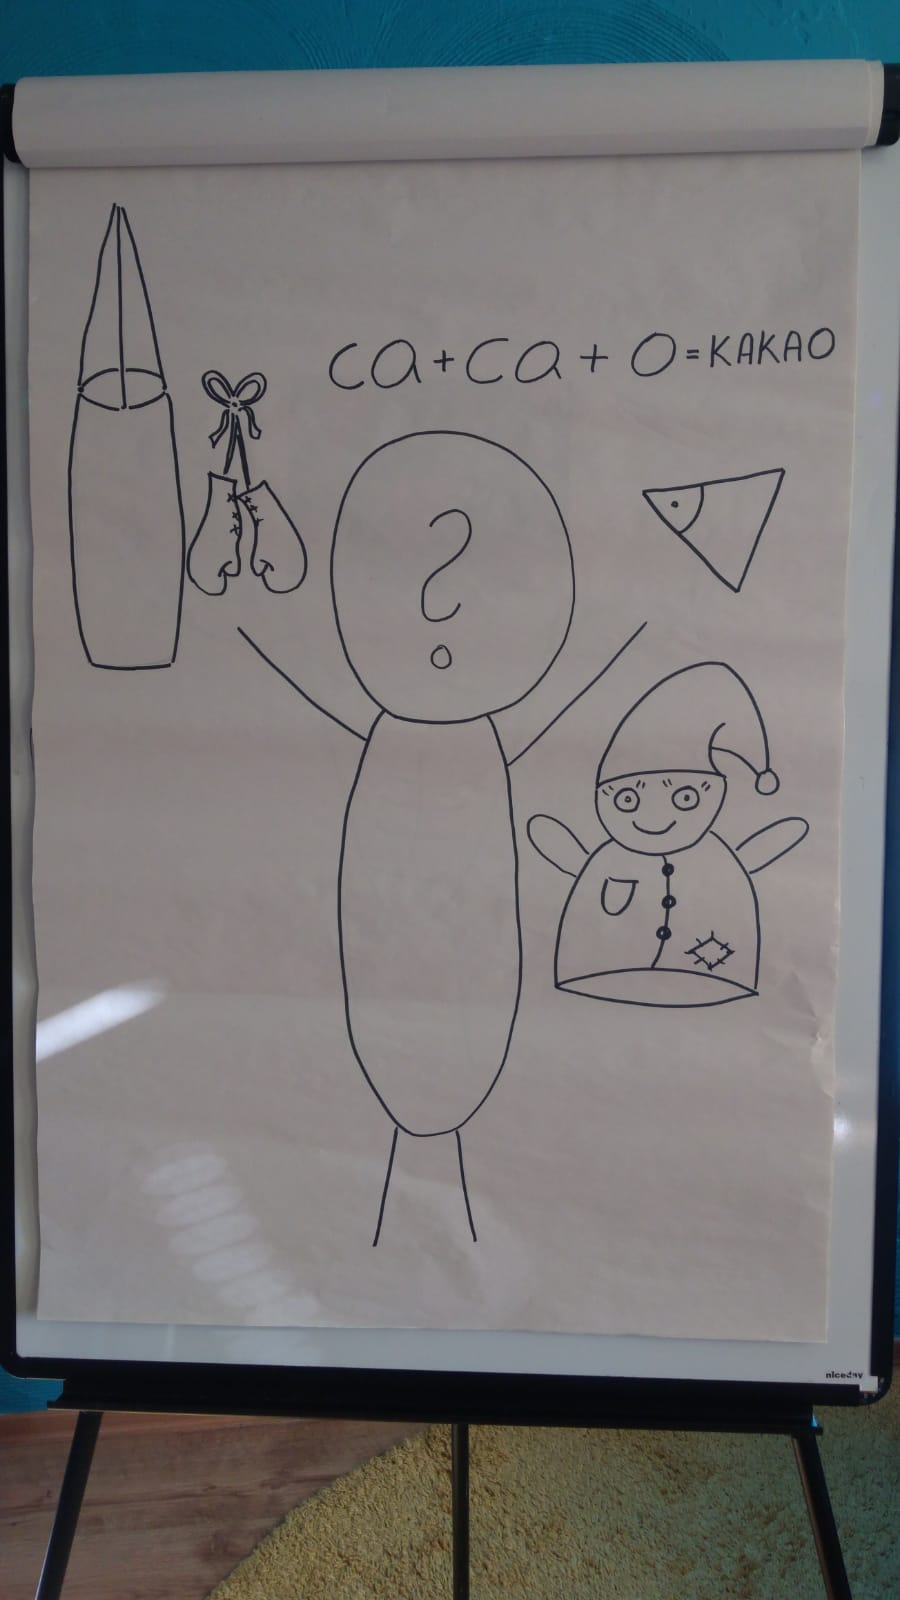 ca+ca+O=KAKAO
?
niceday